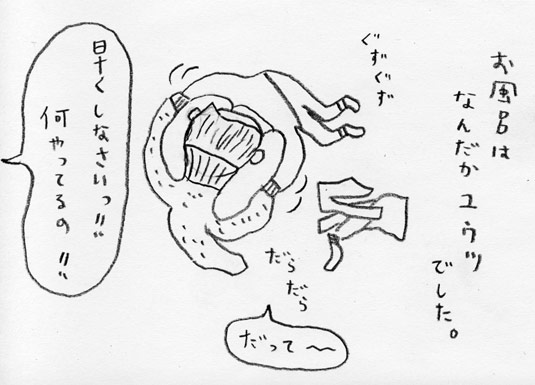 お風呂は
なんだか ユウツ
でした。
ぐずぐず
だらだら
だって〜
早くしなさいっ!!
何やってるの!!